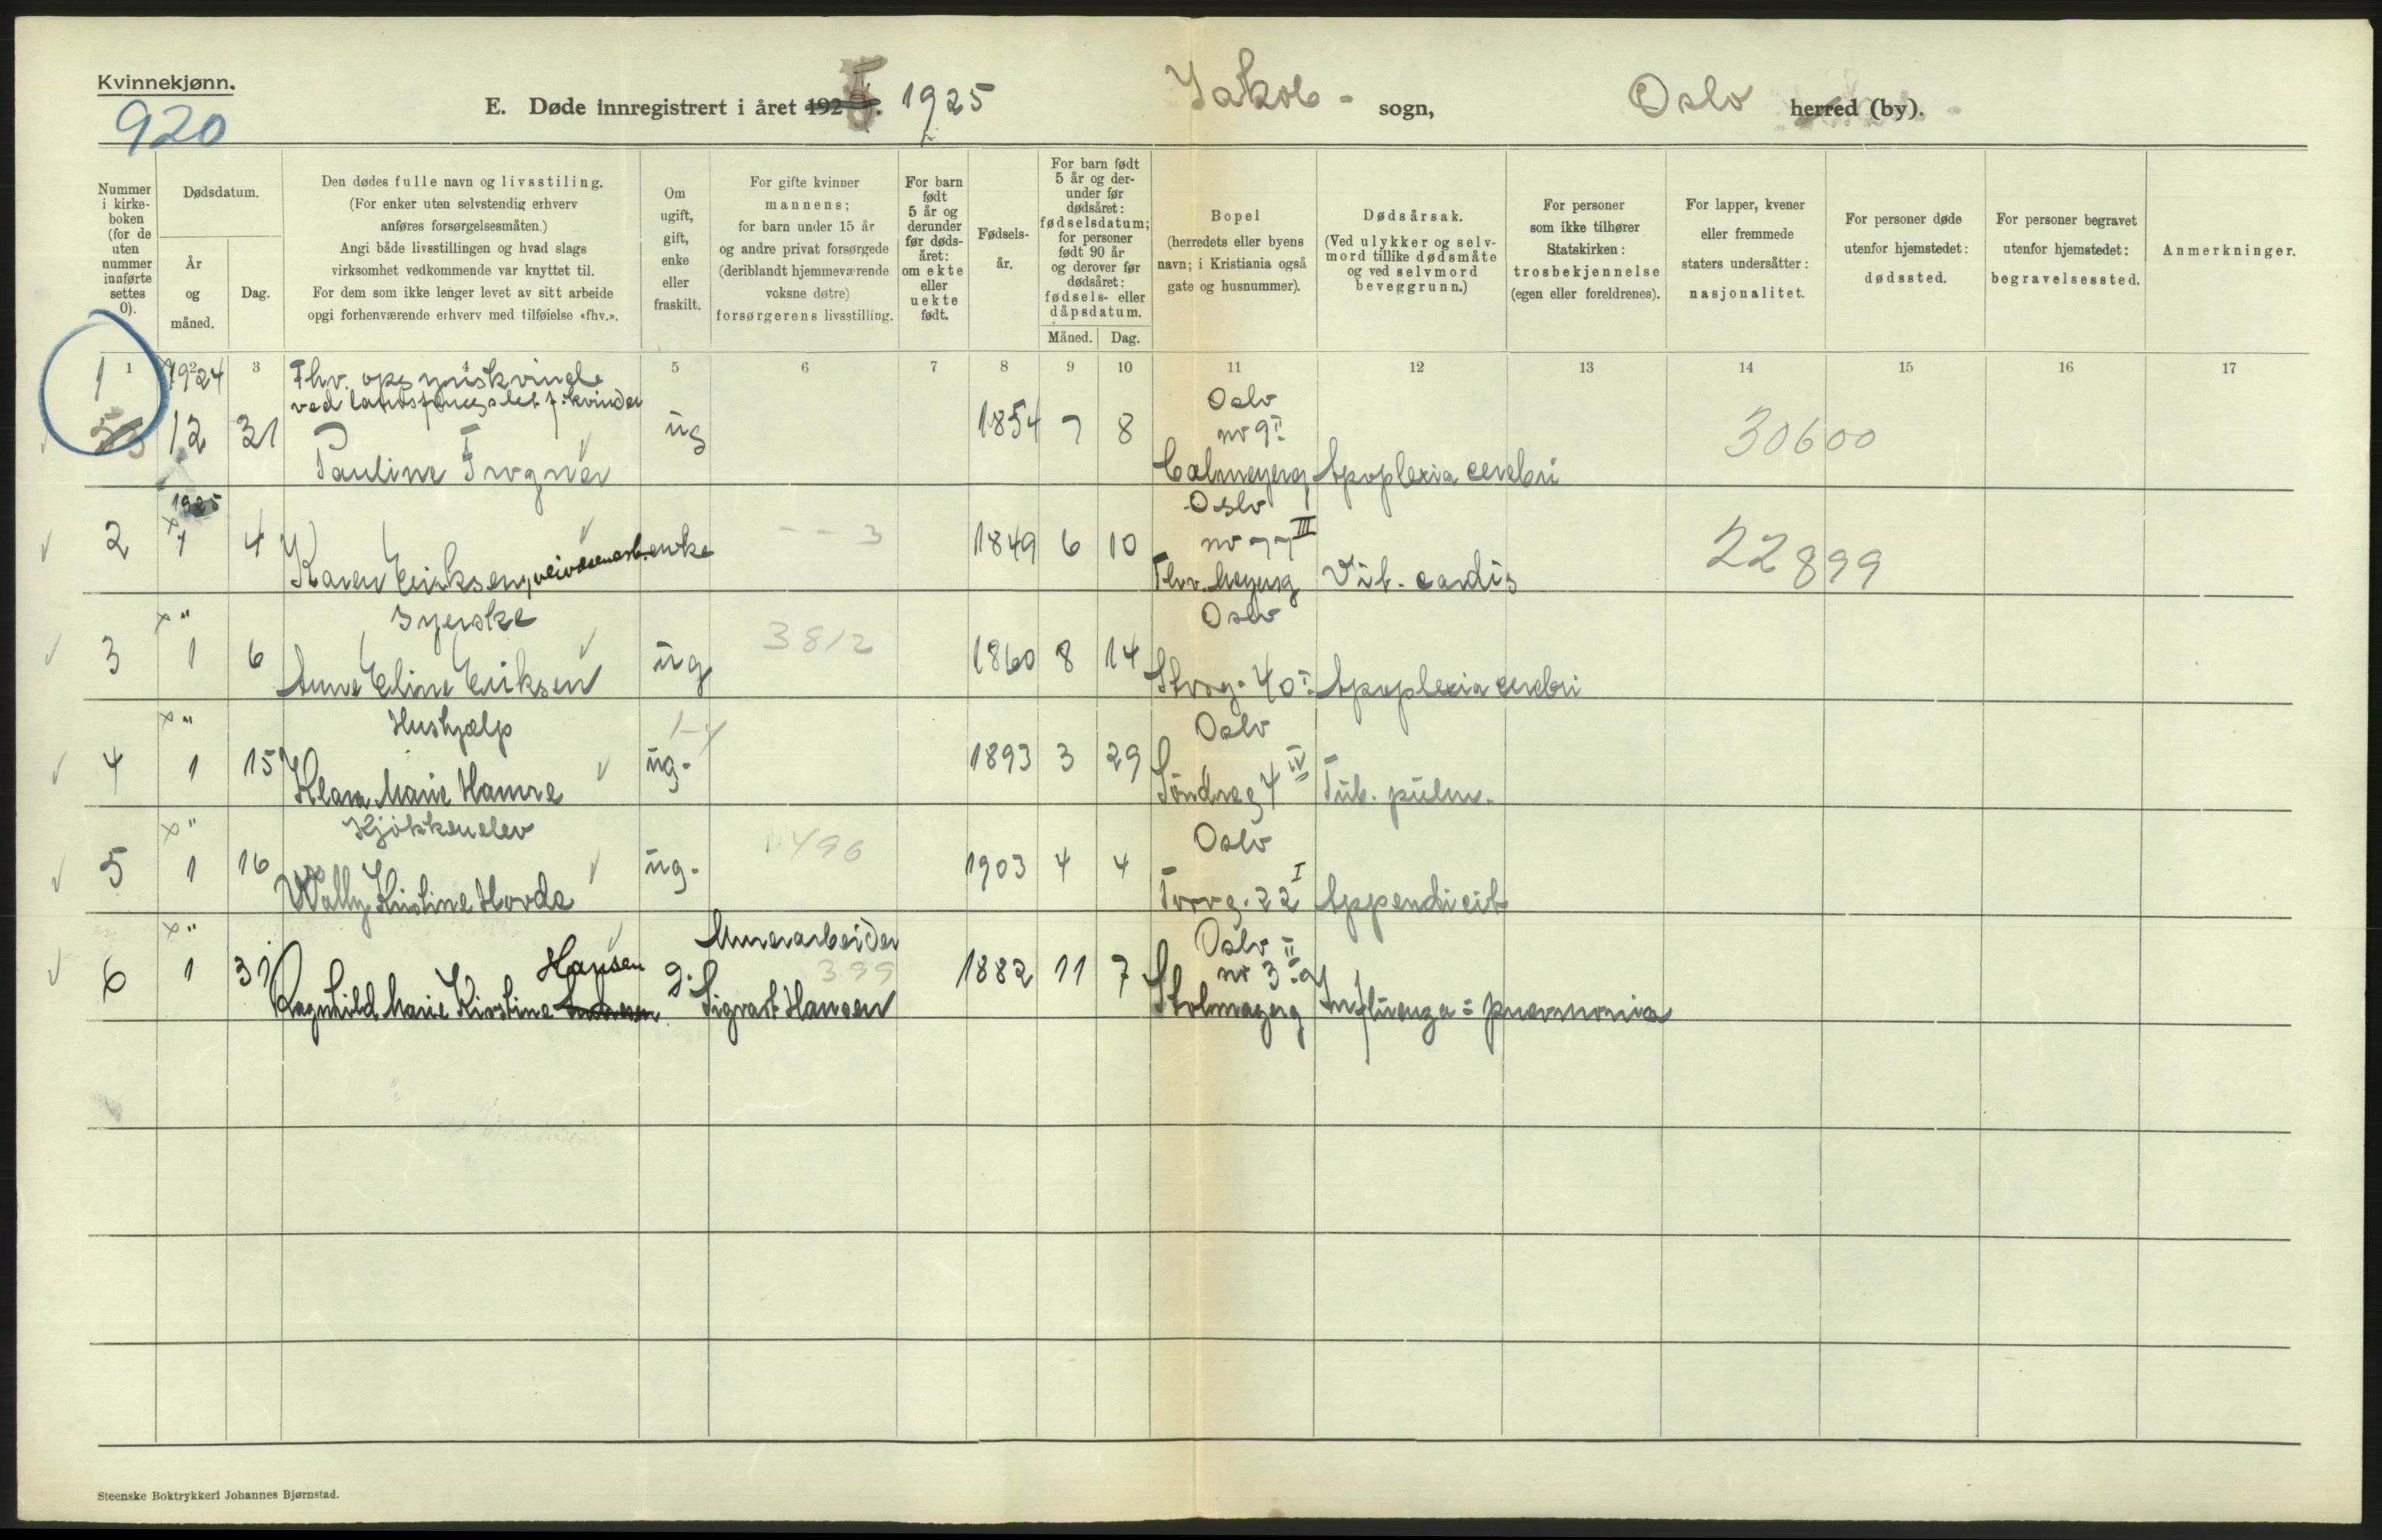 Kvinnekjønn.
920
E. Døde innregistrert i året 192 5. 1925 Jakob - sogn, Oslo herred (by).
Nummer i kirkeboken (for de uten nummer innførte settes 0).
Dødsdatum.
År og måned.
Dag.
Den dødes fulle navn og livsstiling.
(For enker uten selvstendig erhverv
anføres forsørgelsesmåten.)
Angi både livsstillingen og hvad slags
virksomhet vedkommende var knyttet til.
For dem som ikke lenger levet av sitt arbeide
opgi forhenværende erhverv med tilføielse «fhv.».
Om ugift, gift, enke eller fraskilt.
For gifte kvinner
mannens;
for barn under 15 år
og andre privat forsørgede
(deriblandt hjemmeværende
voksne døtre)
forsørgerens livsstilling.
For barn født 5 år og derunder før dødsåret: om ekte eller uekte født.
Fødselsår.
For barn født 5 år og derunder før dødsåret: fødselsdatum; for personer født 90 år og derover før dødsåret: fødsels- eller dåpsdatum.
Måned. Dag.
Bopel
(herredets eller byens
navn; i Kristiania også
gate og husnummer).
Dødsårsak.
(Ved ulykker og selv-
mord tillike dødsmåte
og ved selvmord
beveggrunn.)
For personer
som ikke tilhører
Statskirken:
trosbekjennelse
(egen eller foreldrenes).
For lapper, kvener
eller fremmede
staters undersåtter:
nasjonalitet.
For personer døde
utenfor hjemstedet:
dødssted.
For personer begravet
utenfor hjemstedet:
begravelsessted.
Anmerkninger.
1 2 3 4 5 6 7 8 9 10 11 12 13 14 15 16 17
1924 Fhv. opsynskvinde
ved landsfængslet f. kvinder Oslo
1 12 31 Pauline Trogner ug 1854 7 8 nr 9 II 30600
Calmeyerg Apoplexia cerebri
1925 Oslo
2 1 4 Karen Eriksen, veivæsenarb. enke - - 3 1849 6 10 nr 77 III 22899
Thv. Meyersg Vit. cordis
" Syerske Oslo
3 1 6 Anne Eline Eriksen ug 3812 1860 8 14 Storg. 40 I Apoplexia cerebri
" Hushjælp 1-4 Oslo
4 1 15 Klara Marie Hamre ug. 1893 3 29 Söndreg 4 IV Tub. pulm.
" Kjökkenelev Oslo
5 1 16 Wally Kristine Hovde ug. 496 1903 4 4 Torvg. 22 I Appendicit
" Murerarbeider Oslo
6 1 31 Ragnhild Marie Kristine Hansen g. 399 Sigvart Hansen 1882 11 7 nr 3 II
Influenza = pneumonia
Steenske Boktrykkeri Johannes Bjørnstad.